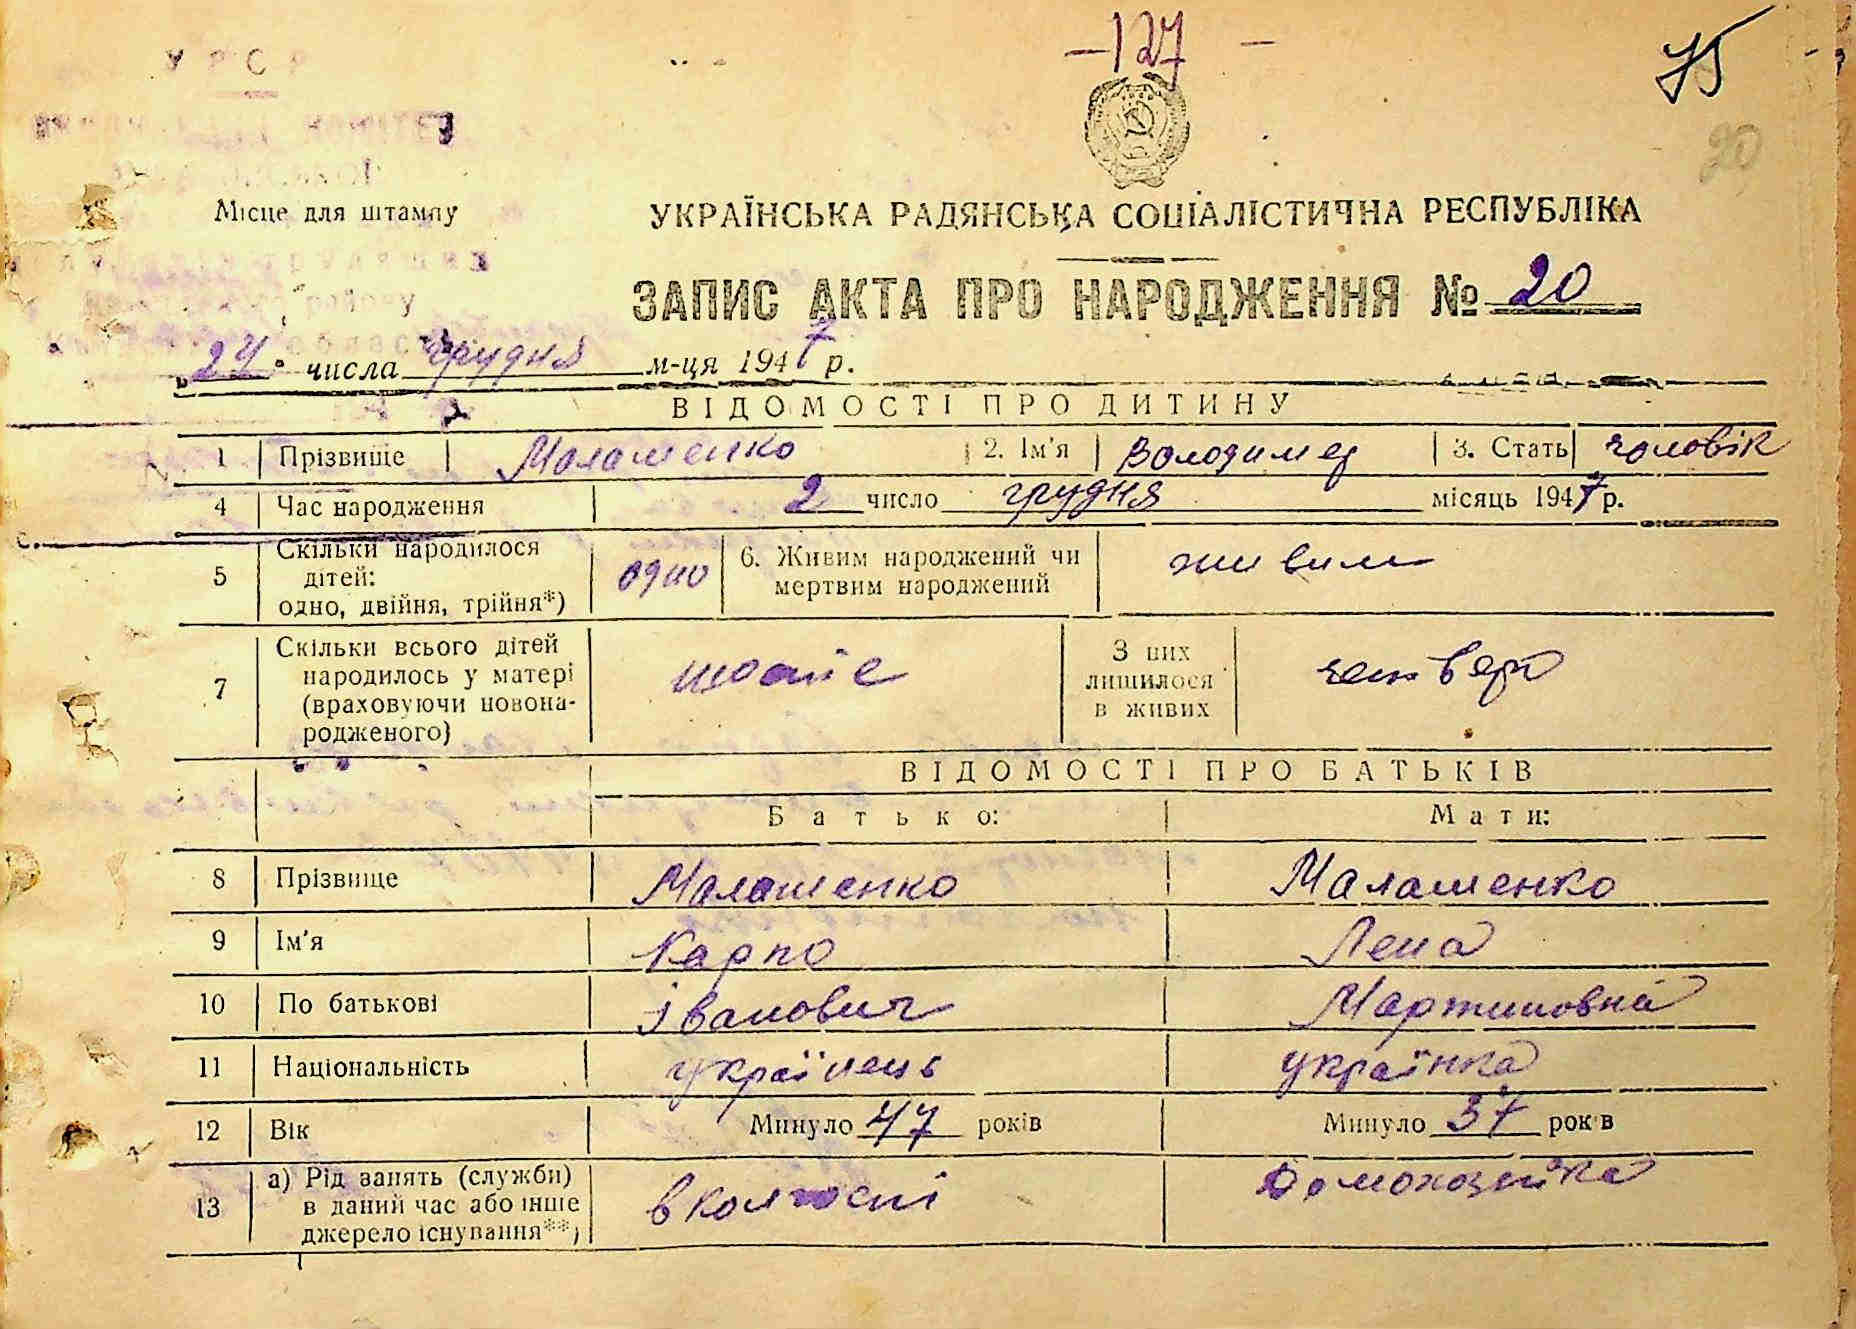 -127-
75
20
УРСР
Місце для штампу
УКРАЇНСЬКА РАДЯНСЬКА СОЦІАЛІСТИЧНА РЕСПУБЛІКА
ЗАПИС АКТА ПРО НАРОДЖЕННЯ № 20
"24" числа грудня м-ця 1947 р.
ВІДОМОСТІ ПРО ДИТИНУ
1 Прізвище Малашенко 2. Ім'я Володимер 3. Стать чоловік
4 Час народження 2 число грудня місяць 1947 р.
5 Скільки народилося дітей: одно, двійня, трійня*) одно 6. Живим народжений чи мертвим народжений живим
7 Скільки всього дітей народилось у матері (враховуючи новонародженого) З них лишилося в живих четверо
ВІДОМОСТІ ПРО БАТЬКІВ
Батько: Мати:
8 Прізвище Малашенко Малашенко
9 Ім'я Карпо Лена
10 По батькові Іванович Мартиновна
11 Національність українець українка
12 Вік Минуло 47 років Минуло 37 років
13 а) Рід занять (служби) в даний час або інше джерело існування**) в колгоспі Домохозяйка